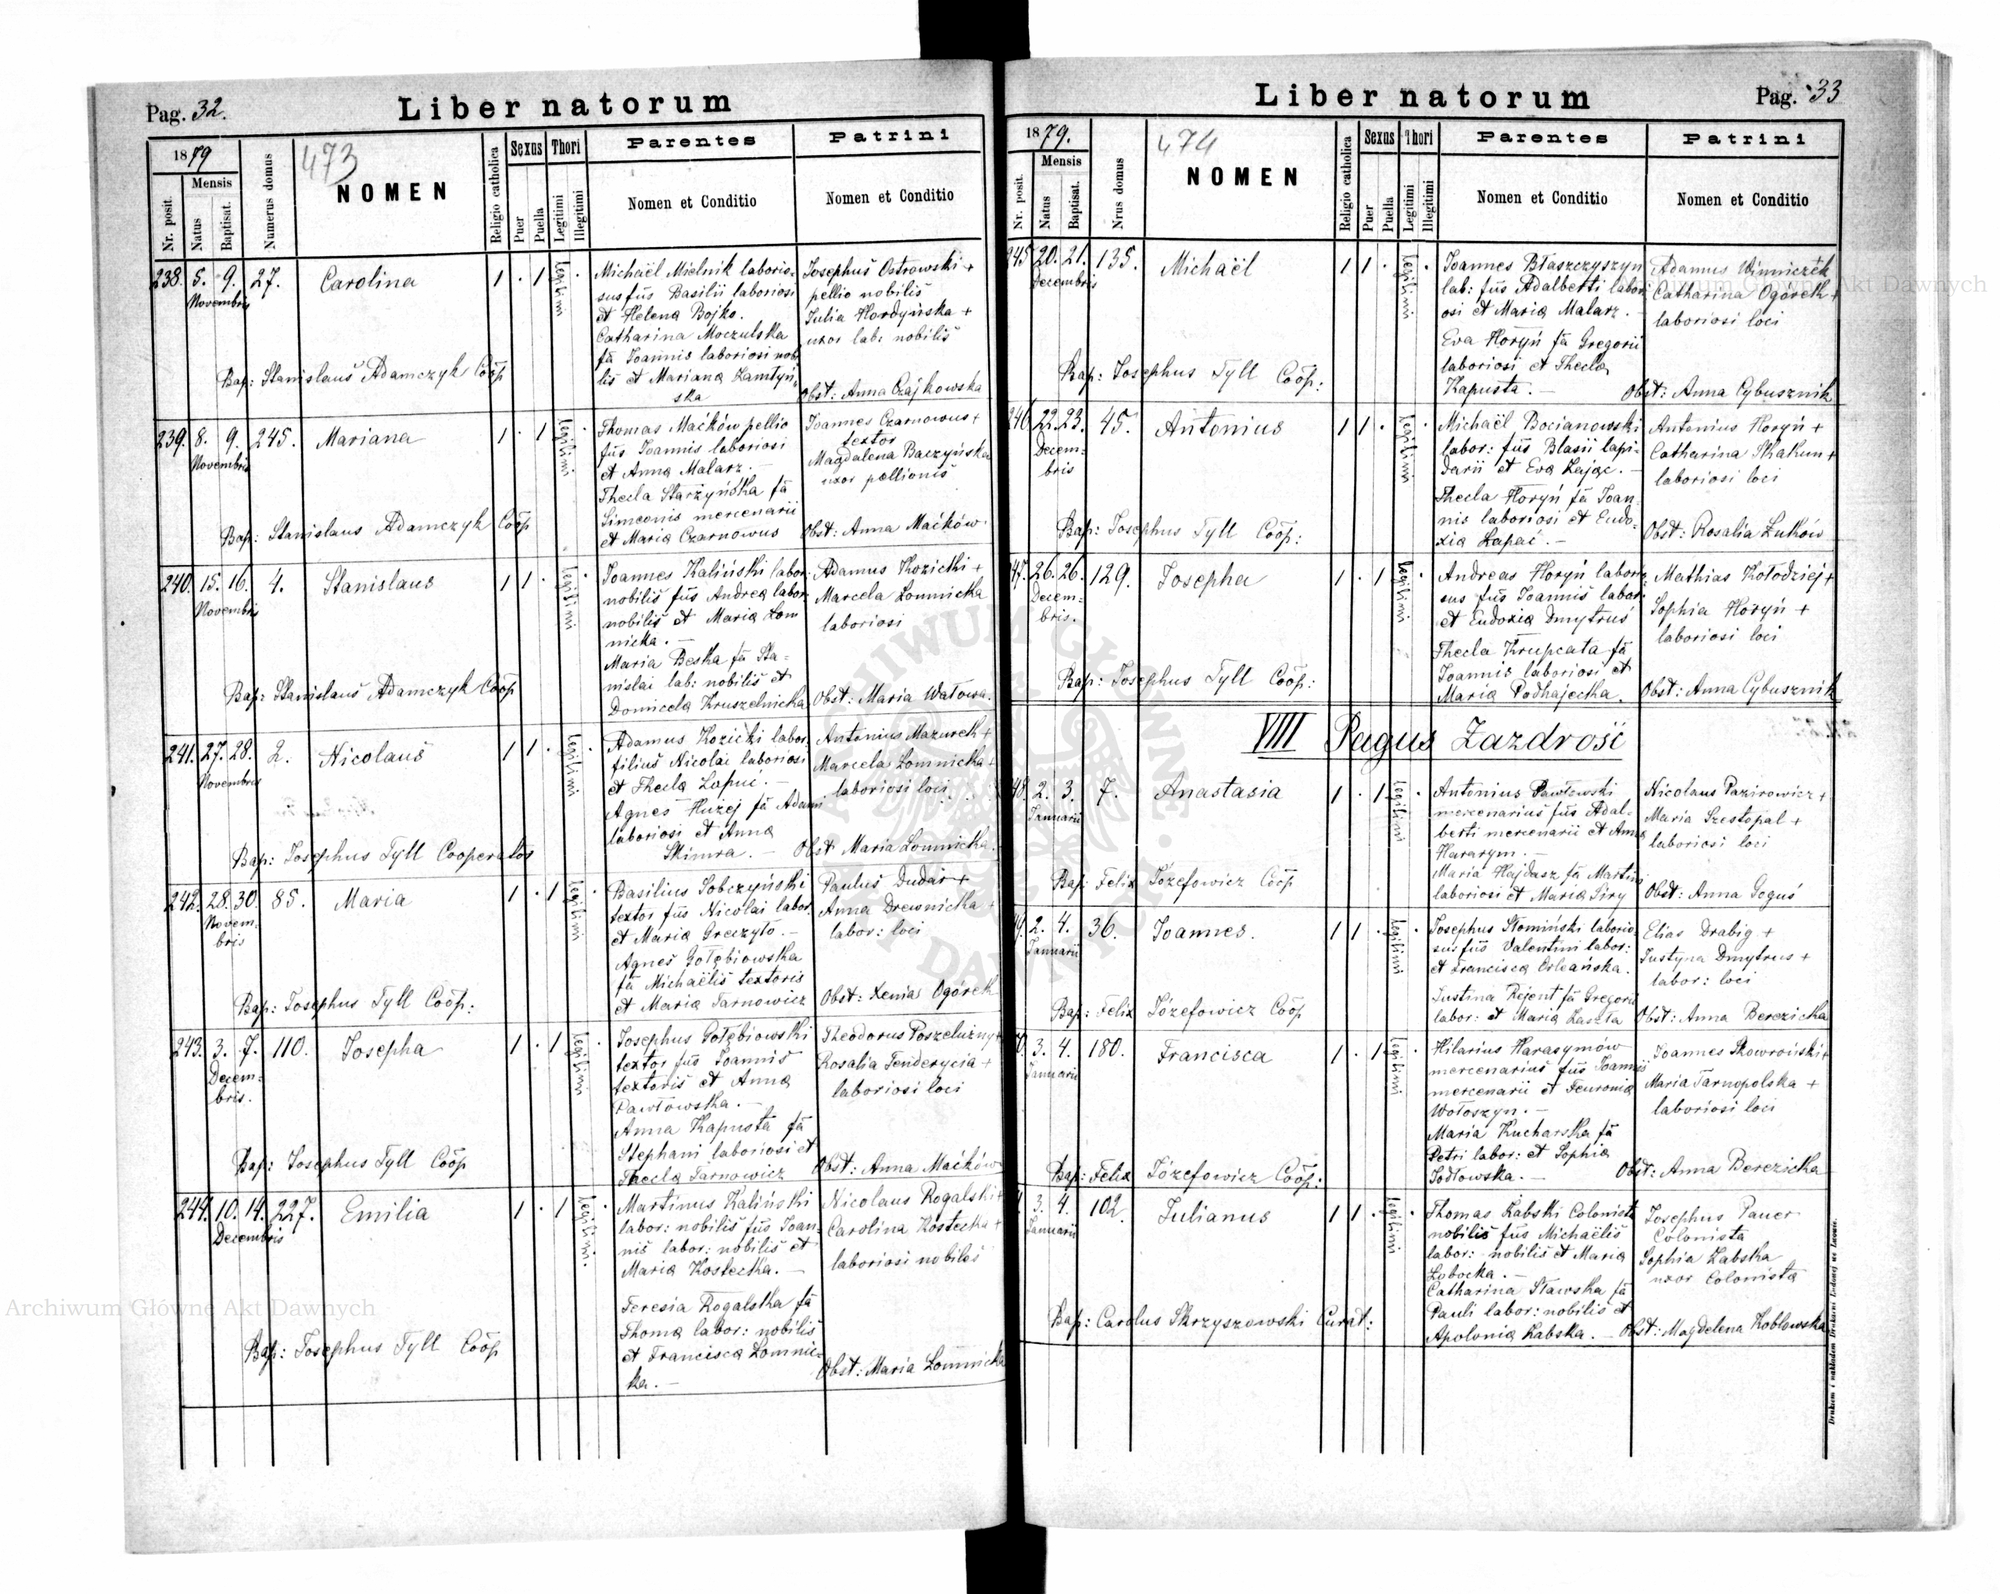 Pag. 32.
Liber natorum
1879
473
Nr. posit.
Mensis
Natus
Baptisat.
Numerus domus
NOMEN
Religio catholica
Sexus
Puer
Puella
Thori
Legitimi
Illegitimi
Parentes
Nomen et Conditio
Patrini
Nomen et Conditio
238. 5. 9. 27. Carolina 1 · 1 legitimi ·
Novembris
Michaël Mielnik laborio-
sus fũs Basilii laboriosi
et Helena Bojko.
Catharina Moczulska
fã Joannis laboriosi nobi-
lis et Mariana Zamłyń-
ska
Josephus Ostrowski +
pellio nobilis
Julia Hordyńska +
uxor lab: nobilis
Bap: Stanislaus Adamczyk Coõp
Obst: Anna Czajkowska
239. 8. 9. 245. Mariana 1 · 1 legitimi ·
Novembris
Thomas Maćków pellio
fũs Joannis laboriosi
et Anna Malarz. —
Thecla Starzyńska fã
Simeonis mercenarii
et Maria Czarnowus
Joannes Czarnowus +
textor
Magdalena Baczyńska
uxor pellionis
Bap: Stanislaus Adamczyk Coõp
Obst: Anna Maćków
240. 15. 16. 4. Stanislaus 1 1 · legitimi ·
Novembris
Joannes Kaliński labor:
nobilis fũs Andrea labor:
nobilis et Maria Łom
nicka. —
Maria Beska fã Sta-
nislai lab: nobilis et
Domicela Kruszelnicka
Adamus Kozicki +
Marcela Łomnicka
laboriosi
Bap: Stanislaus Adamczyk Coõp
Obst: Maria Watowa.
241. 27. 28. 2. Nicolaus 1 1 · legitimi ·
Novembris
Adamus Kozicki labor:
filius Nicolai laboriosi
et Thecla Łapuć. —
Agnes Hużej fã Adami
laboriosi et Anna
Skimra. —
Antonius Mazurek +
Marcela Łomnicka +
laboriosi loci
Bap: Josephus Tyll Cooperator
Obst: Maria Łomnicka.
242. 28. 30. 85. Maria 1 · 1 legitimi ·
Novem-
bris
Basilius Sobczyński
textor fũs Nicolai labor:
et Maria Greczyło. —
Agnes Gołębiowska
fã Michaëlis textoris
et Maria Tarnowicz
Paulus Dudar +
Anna Drewnicka +
labor: loci
Bap: Josephus Tyll Coõp:
Obst: Xenia Ogórek
243. 3. 7. 110. Josepha 1 · 1 legitimi ·
Decem-
bris.
Josephus Gołębiowski
textor fũs Joannis
textoris et Anna
Pawłowska. —
Anna Kapusta fã
Stephani laboriosi et
Thecla Tarnowicz
Theodorus Poszelużny +
Rosalia Fenderycia +
laboriosi loci
Bap: Josephus Tyll Coõp
Obst: Anna Maćków
244. 10. 14. 227. Emilia 1 · 1 legitimi. ·
Decembris
Martinus Kaliński
labor: nobilis fũs Joan-
nis labor: nobilis et
Maria Kostecka. —
Teresia Rogalska fã
Thoma labor: nobilis
et Francisca Łomnic-
ka. —
Nicolaus Rogalski +
Carolina Kostecka +
laboriosi nobiles
Bap: Josephus Tyll Coõp
Obst: Maria Łomnicka
Liber natorum
Pag. 33
1879.
474
Nr. posit.
Mensis
Natus
Baptisat.
Nrus domus
NOMEN
Religio catholica
Sexus
Puer
Puella
Thori
Legitimi
Illegitimi
Parentes
Nomen et Conditio
Patrini
Nomen et Conditio
245 20. 21. 135. Michaël 1 1 · legitimi ·
Decembris
Joannes Błaszczyszyn
lab: fũs Adalberti labori-
osi et Maria Malarz. —
Eva Horyń fã Gregorii
laboriosi et Thecla
Kapusta. —
Adamus Winniczek +
Catharina Ogórek +
laboriosi loci
Bap: Josephus Tyll Coõp:
Obst: Anna Cybusznik
246 22. 23. 45. Antonius 1 1 · legitimi ·
Decem-
bris
Michaël Bocianowski
labor: fũs Blasii lapi-
darii et Eva Zając. —
Thecla Horyń fã Joan-
nis laboriosi et Eudo-
xia Łapać. —
Antonius Horyń +
Catharina Skakun +
laboriosi loci
Bap: Josephus Tyll Coõp:
Obst: Rosalia Łuków
47. 26. 26. 129. Josepha 1 · 1 legitimi ·
Decem-
bris.
Andreas Horyń laborio-
sus fũs Joannis labor:
et Eudoxia Dmytrus
Thecla Krupcata fã
Joannis laboriosi et
Maria Podhajecka.
Mathias Kołodziej +
Sophia Horyń +
laboriosi loci
Bap: Josephus Tyll Coõp:
Obst: Anna Cybusznik
VIII Pagus Zazdrość
48. 2. 3. 7. Anastasia 1 · 1 legitimi ·
Januarii
Antonius Pawłowski
mercenarius fũs Adal-
berti mercenarii et Anna
Hararym. —
Maria Hajdasz fã Martini
laboriosi et Maria Siry
Nicolaus Pazirowicz +
Maria Szestopal +
laboriosi loci
Bap: Felix Józefowicz Coõp
Obst: Anna Goguś
49. 2. 4. 36. Joannes. 1 1 · legitimi ·
Januarii
Josephus Słomiński laborio-
sus fũs Valentini labor:
et Francisca Orleańska.
Justina Rejent fã Gregorii
labor: et Maria Łaszta
Elias Drabig +
Justyna Dmytrus +
labor: loci
Bap: Felix Józefowicz Coõp
Obst: Anna Berezicka
50. 3. 4. 180. Francisca 1 · 1 legitimi ·
Januarii
Hilarius Harasymów
mercenarius fũs Joannis
mercenarii et Feuronia
Wołoszyn. —
Maria Kucharska fã
Petri labor: et Sophia
Jodłowska. —
Joannes Skowroński +
Maria Tarnopolska +
laboriosi loci
Bap: Felix Józefowicz Coõp:
Obst: Anna Berezicka
3. 4. 102. Julianus 1 1 · legitimi ·
Januarii
Thomas Łabski Colonista
nobilis fũs Michaëlis
labor: nobilis et Maria
Łobocka. —
Catharina Stawska fã
Pauli labor: nobilis et
Apolonia Łabska. —
Josephus Pauer
Colonista
Sophia Łabska
uxor Colonista
Bap: Carolus Skrzyszowski Curat:
Obst: Magdelena Koblowska
Drukiem i nakładem Drukarni Ludowej we Lwowie.
Archiwum Główne Akt Dawnych
Archiwum Główne Akt Dawnych
ARCHIWUM GŁÓWNE AKT DAWNYCH